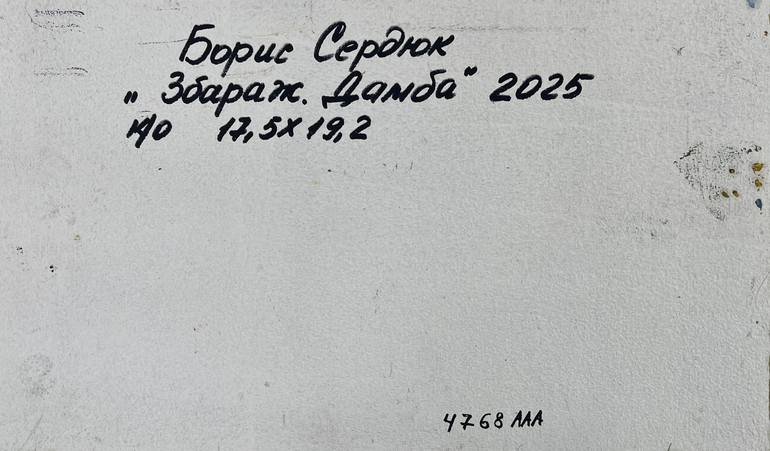 Борис Сердюк
„Збараж. Дамба" 2025
к/о 17,5х19,2
4768 ААА